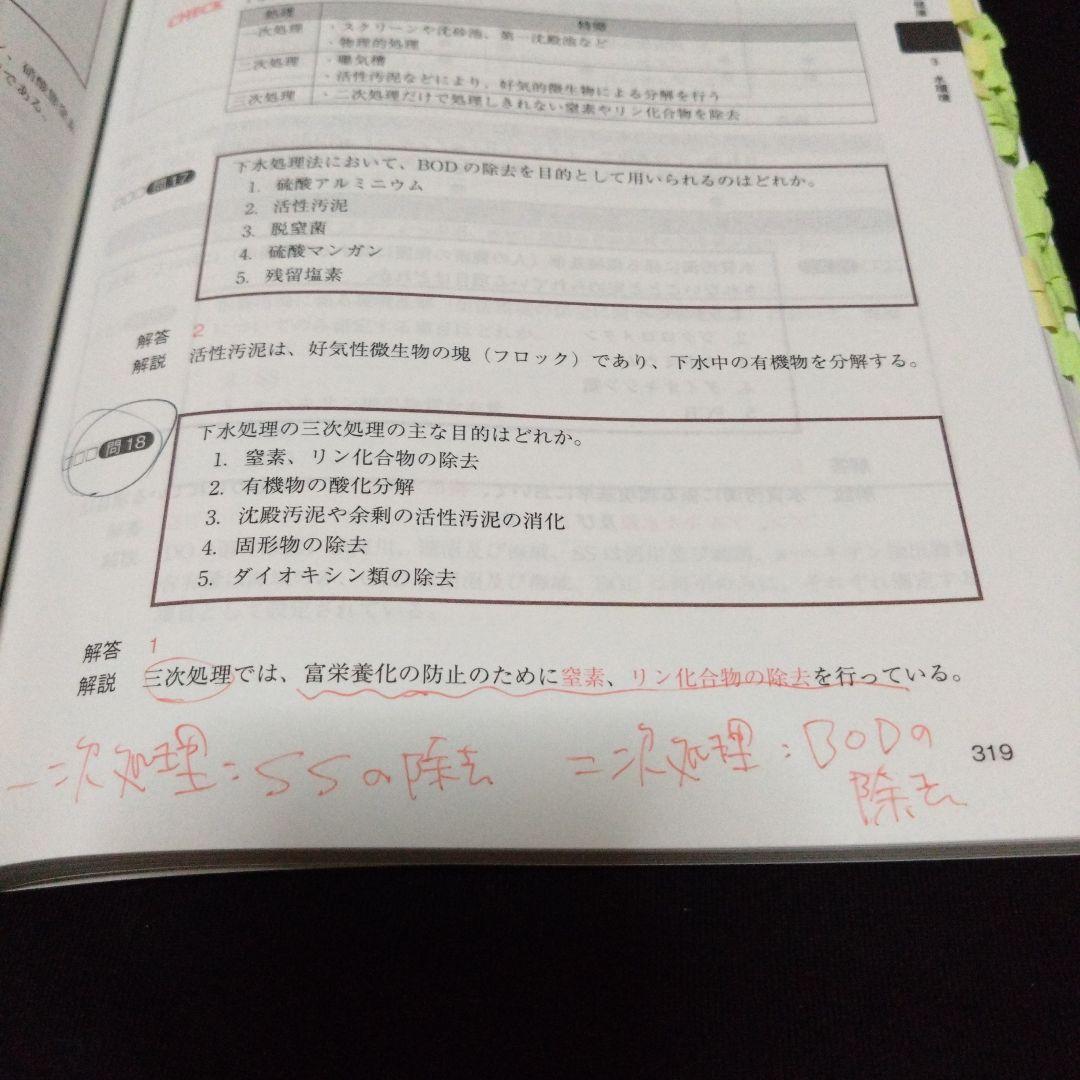 CHECK
処理 特徴
一次処理 ・スクリーンや沈砂池、第一沈殿池など
・物理的処理
二次処理 ・曝気槽
・活性汚泥などにより、好気的微生物による分解を行う
三次処理 ・二次処理だけで処理しきれない窒素やリン化合物を除去
3 水環境
である。
問17
下水処理法において、BODの除去を目的として用いられるのはどれか。
1. 硫酸アルミニウム
2. 活性汚泥
3. 脱窒菌
4. 硫酸マンガン
5. 残留塩素
解答 2
解説 活性汚泥は、好気性微生物の塊（フロック）であり、下水中の有機物を分解する。
問18
下水処理の三次処理の主な目的はどれか。
1. 窒素、リン化合物の除去
2. 有機物の酸化分解
3. 沈殿汚泥や余剰の活性汚泥の消化
4. 固形物の除去
5. ダイオキシン類の除去
解答 1
解説 三次処理では、富栄養化の防止のために窒素、リン化合物の除去を行っている。
一次処理：SSの除去 二次処理：BODの
除去
319